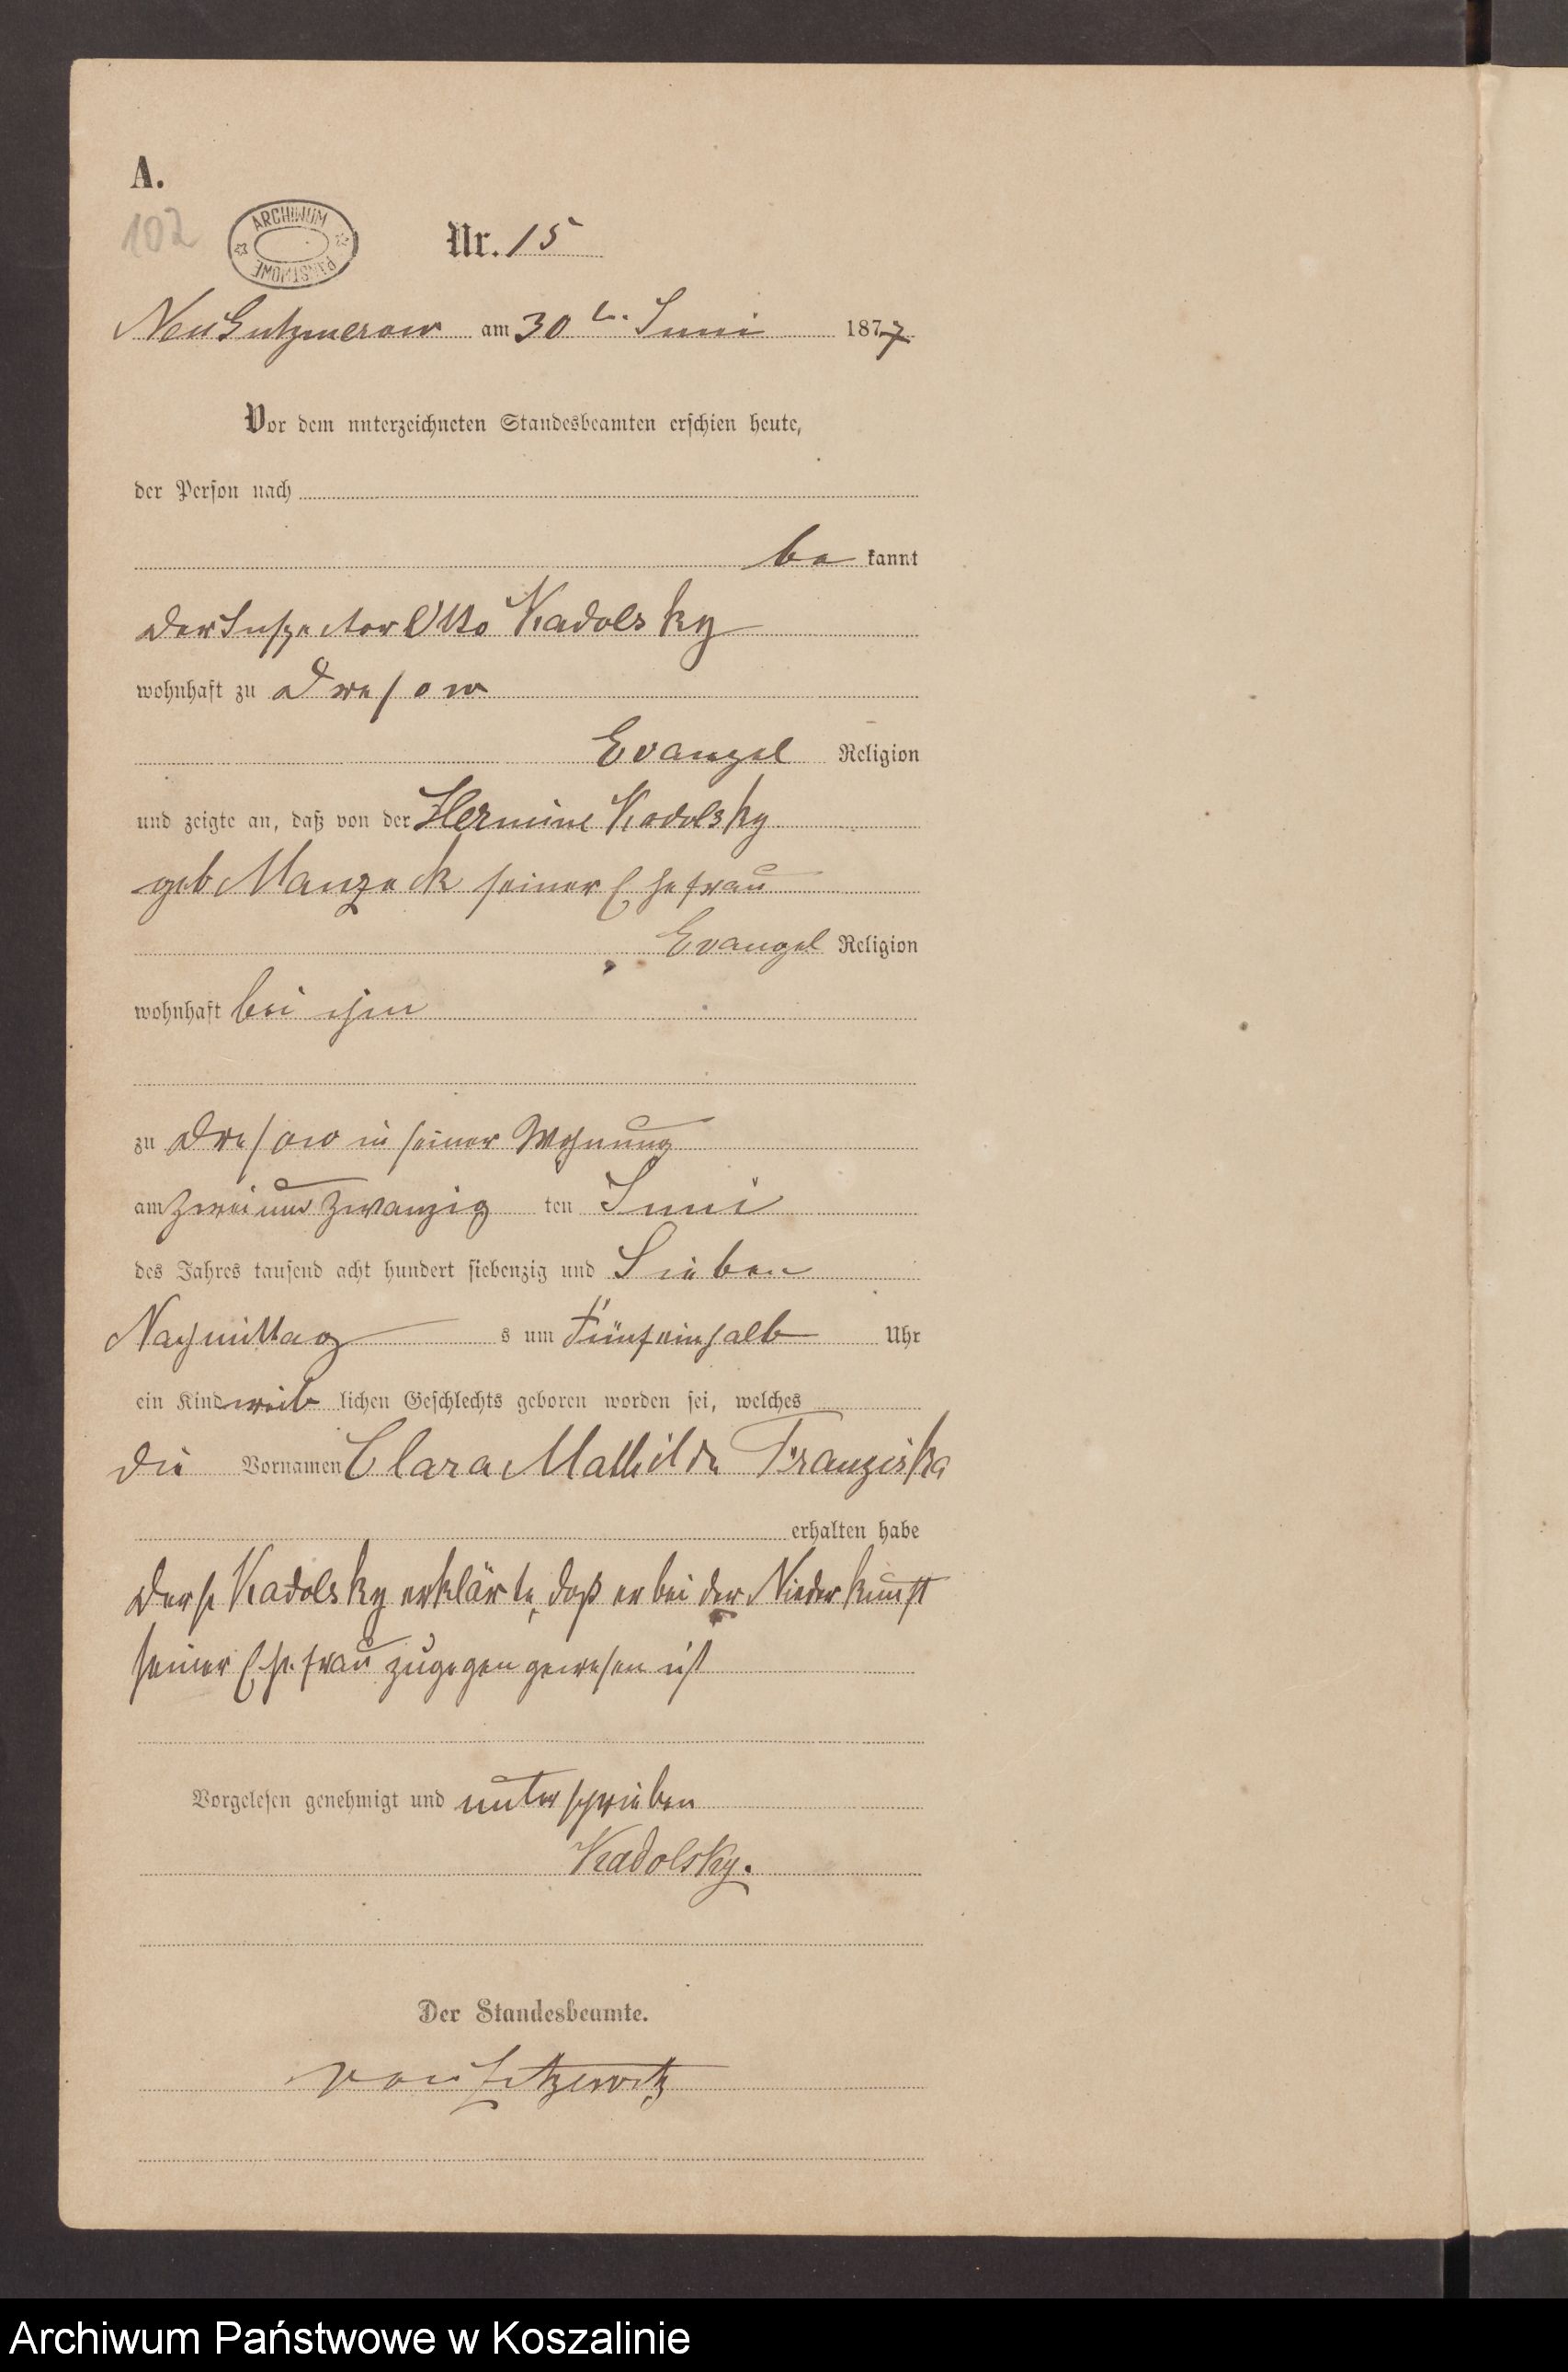 A.
102
ARCHIWUM
PAŃSTWOWE
Nr. 15
Neu Gutzmerow am 30 ten Juni 1877
Vor dem unterzeichneten Standesbeamten erschien heute,
der Person nach
be kannt
der Inspector Otto Kadolsky
wohnhaft zu Dresow
Evangel Religion
und zeigte an, daß von der Hermine Kadolsky
geb Manzeck seiner Ehefrau
Evangel Religion
wohnhaft bei ihm
zu Dresow in seiner Wohnung
am zwei und zwanzig ten Juni
des Jahres tausend acht hundert siebenzig und Sieben
Nachmittag s um Fünfeinhalb Uhr
ein Kind weib lichen Geschlechts geboren worden sei, welches
die Vornamen Clara Mathilde Franziska
erhalten habe
Der p Kadolsky erklärte, daß er bei der Niederkunft
seiner Ehefrau zugegen gewesen ist
Vorgelesen genehmigt und unterschrieben
Kadolsky.
Der Standesbeamte.
von Zitzewitz
Archiwum Państwowe w Koszalinie